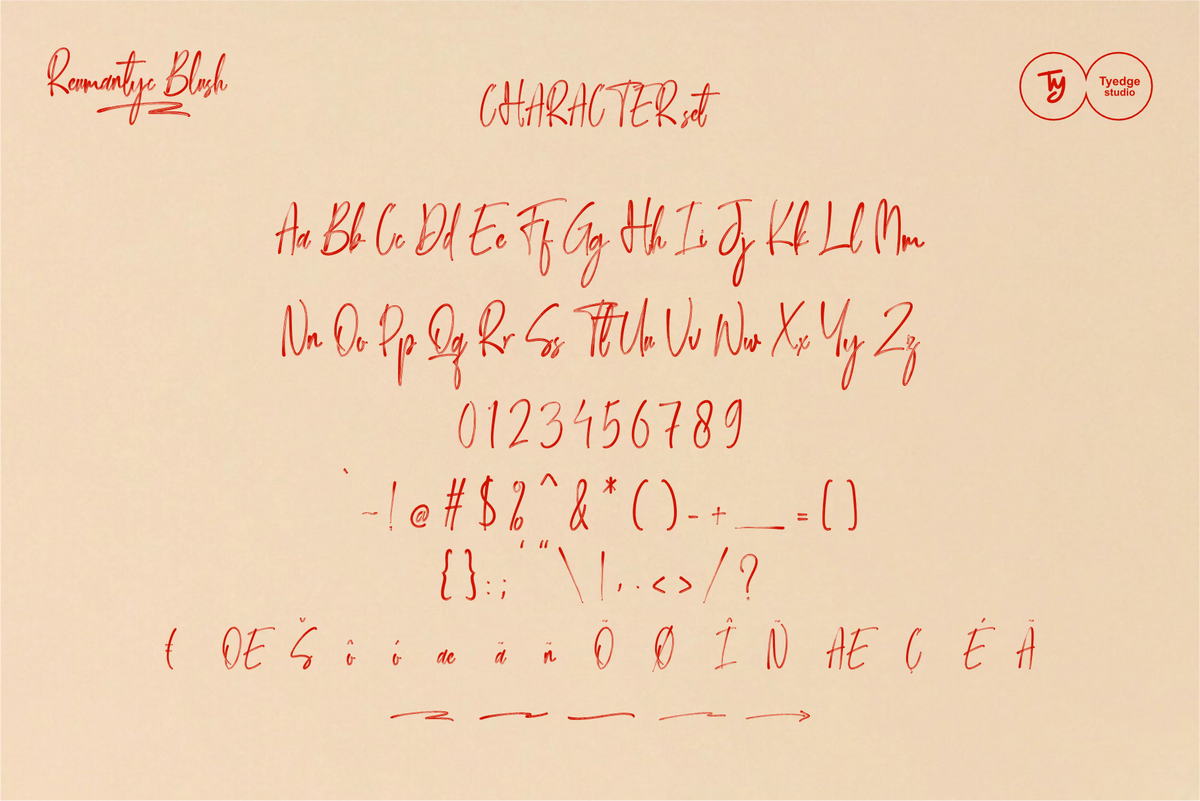 Reumantyc Blush
CHARACTER set
Ty
Tyedge
studio
Aa Bb Cc Dd Ee Ff Gg Hh Ii Jj Kk Ll Mm
Nn Oo Pp Qq Rr Ss Tt Uu Vv Ww Xx Yy Zz
0 1 2 3 4 5 6 7 8 9
` ~ ! @ # $ % ^ & * ( ) - + _ = [ ]
{ } : ; ‘ “ \ | , . < > / ?
Œ Š ô ó æ ã ñ Õ Ø Î Ñ Æ Ç É Ã